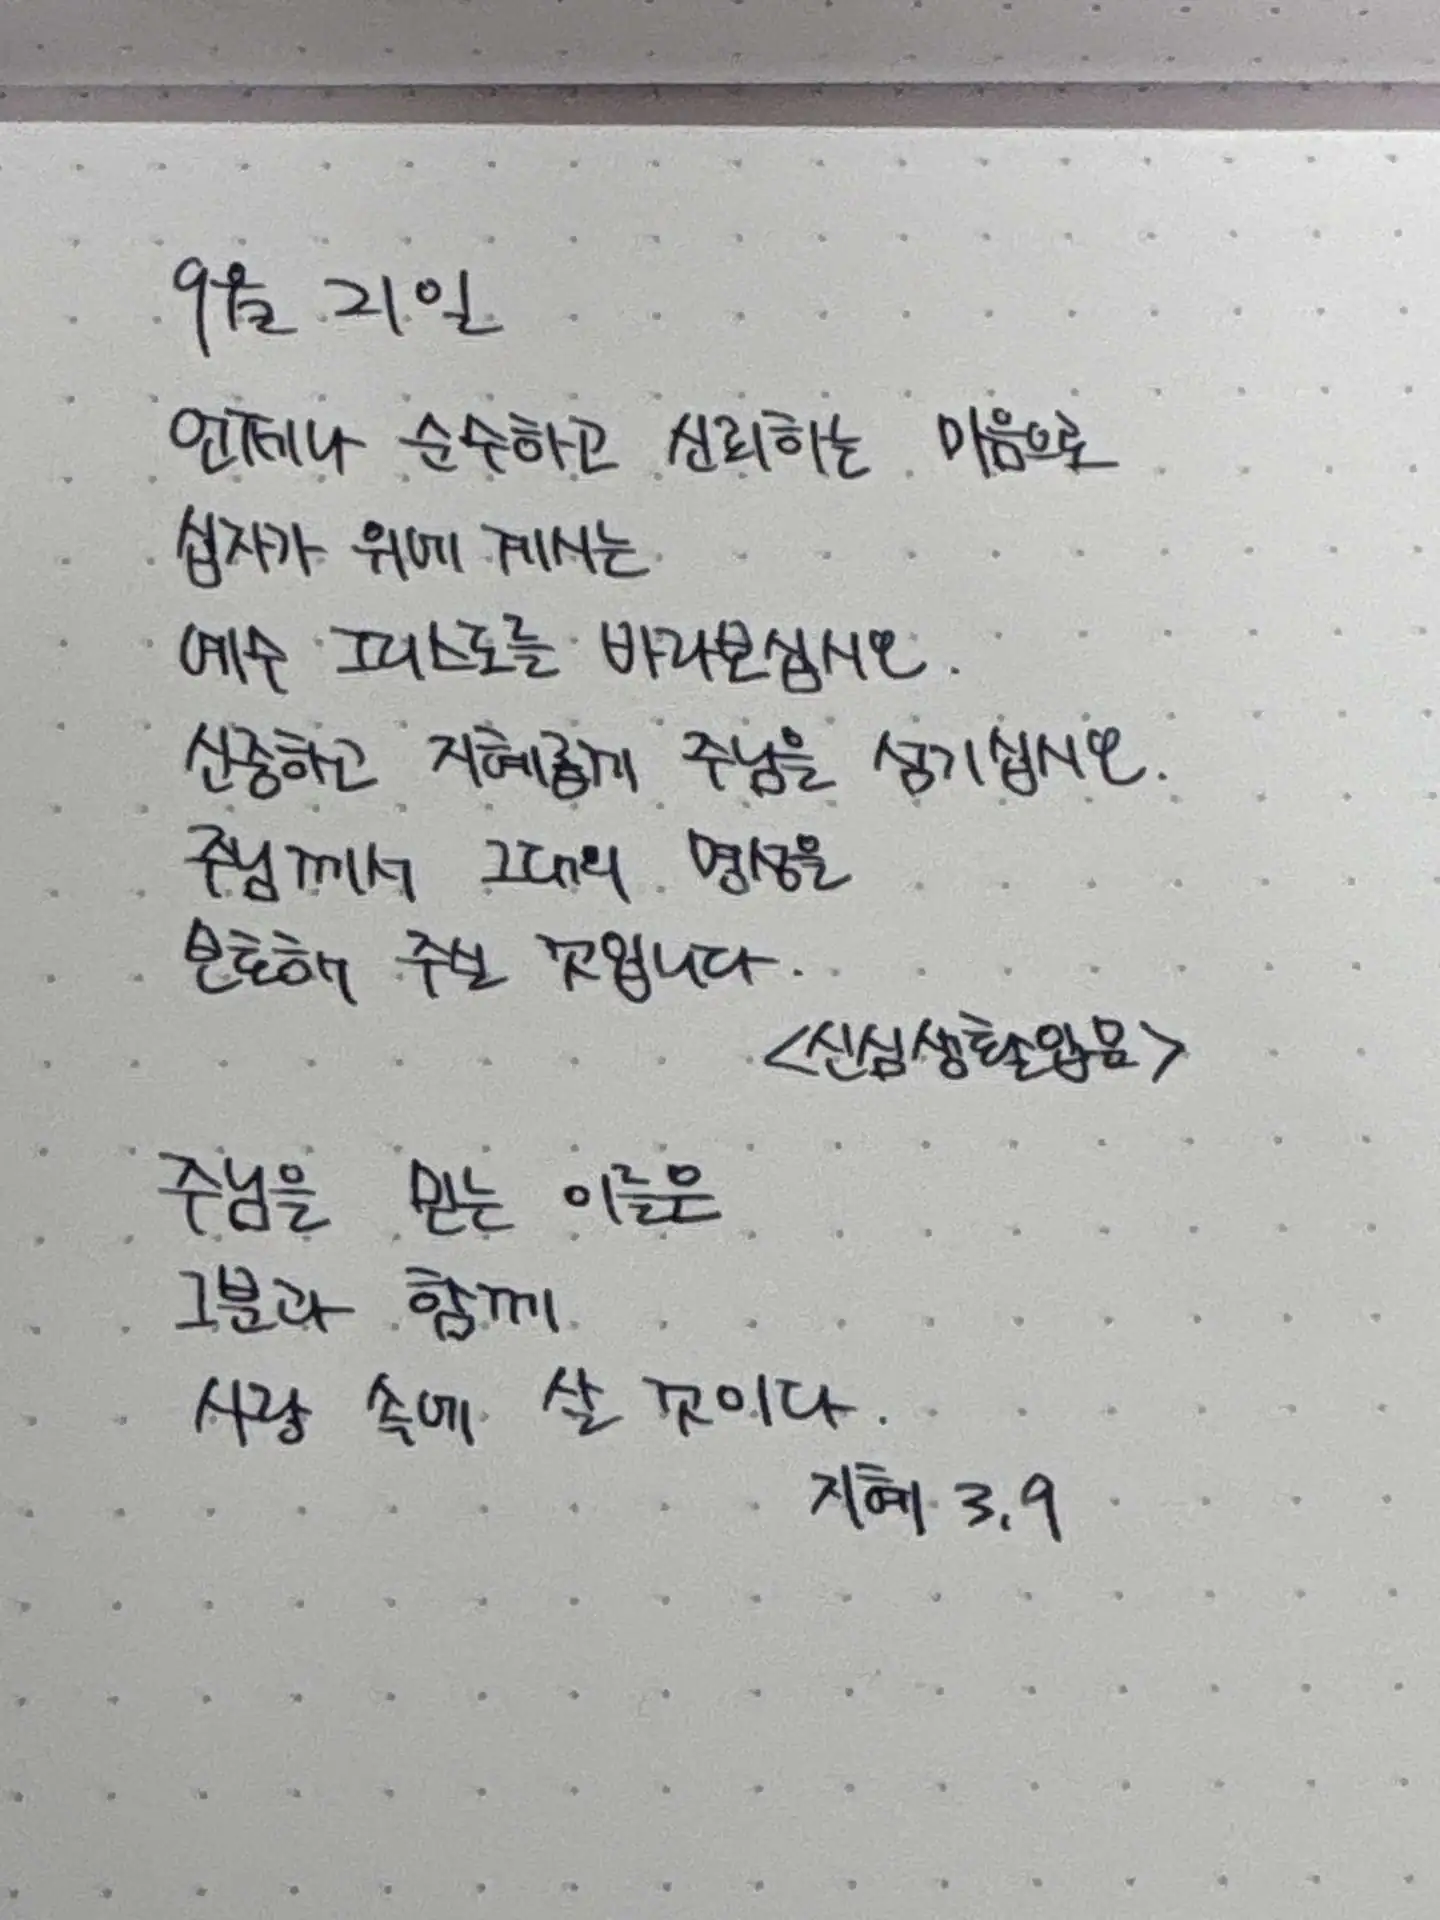 9월 21일
언제나 순수하고 신뢰하는 마음으로
십자가 위에 계시는
예수 그리스도를 바라보십시오.
신중하고 지혜롭게 주님을 섬기십시오.
주님께서 그대의 명성을
보호해 주실 것입니다.
<신심생활입문>
주님을 믿는 이들은
그분과 함께
사랑 속에 살 것이다.
지혜 3,9